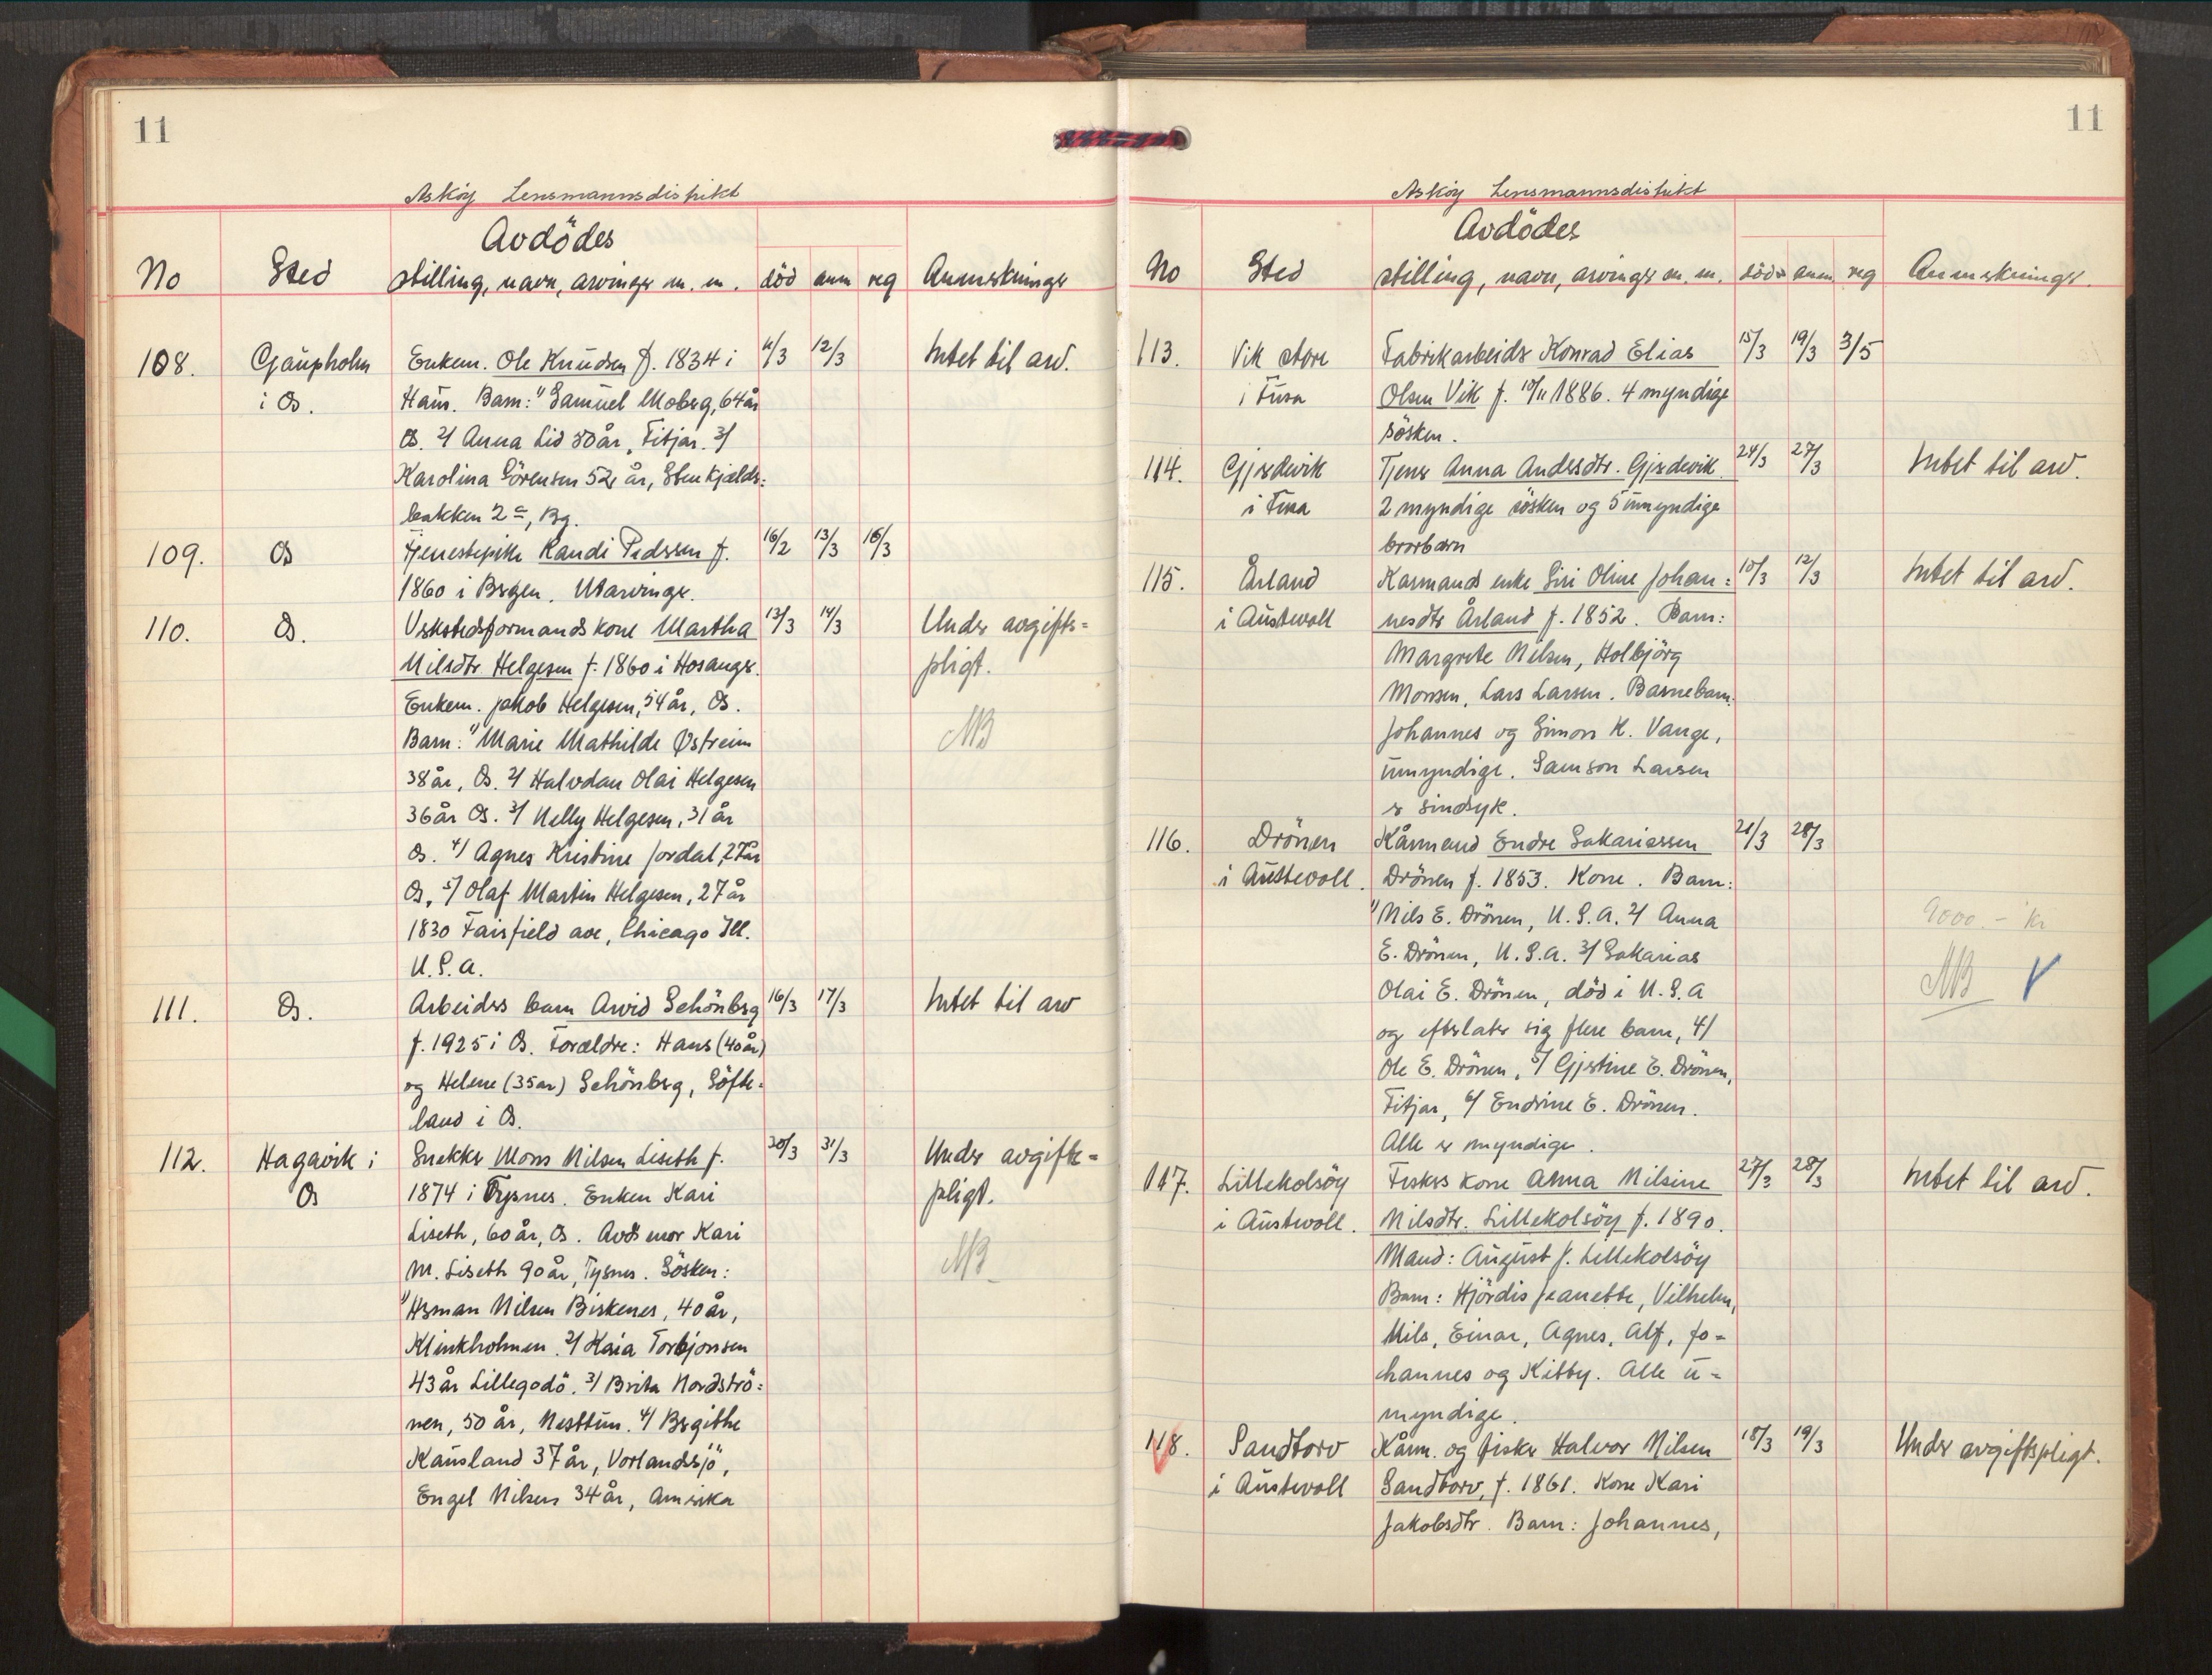 11
Askøy Lensmannsdistrikt
Avdödes
No Sted stilling, navn, arvinger m. m. död anm reg Anmerkninger
108. Gjäupholm Enkem. Ole Knudsen f. 1834 i 11/3 12/3 Intet til arv.
i Os. Haus. Barn: 1/ Samuel Moberg, 64 år
Os. 2/ Anna Lid 50 år, Fitjar. 3/
Karolina Sörensen 52 år, Stenkjelds=
bakken 2 c, Bg.
109. Os Tjenestepike Randi Pedersen f. 16/2 13/3 16/3
1860 i Bergen. Utarvinger.
110. Os. Verkstedsformands kone Martha 13/3 14/3 Under avgifts=
Nilsdtr. Helgesen f. 1860 i Hosanger. pligt.
Enkem. Jakob Helgesen, 54 år, Os.
Barn: 1/ Marie Mathilde Østreim NB
38 år, Os. 2/ Halvdan Olai Helgesen
36 år Os. 3/ Nelly Helgesen, 31 år
Os. 4/ Agnes Kristine Jordal, 27 år
Os, 5/ Olaf Martin Helgesen, 27 år
1830 Fairfield ave, Chicago Ill.
U.S.A.
111. Os. Arbeiders barn Arvid Schönberg 16/3 17/3 Intet til arv
f. 1925 i Os. Forældre: Hans (40 år)
og Helene (35 år) Schönberg, Söfte=
land i Os.
112. Hagavik i Snekker Mons Nilsen Liseth f. 30/3 31/3 Under avgifts=
Os 1874 i Tysnes. Enken Kari pligt.
Liseth, 60 år, Os. Avds mor Kari
M. Liseth 90 år, Tysnes. Sösken: NB
1/ Herman Nilsen Beskenes, 40 år,
Klinkholmen. 2/ Kaia Torbjonsen
43 år Lillegodö. 3/ Brita Nordströ=
nen, 50 år, Nesttun. 4/ Bergithe
Kausland 37 år, Vorlandsjö,
Engel Nilsen 34 år, Amerika
11
Askøy Lensmannsdistrikt
Avdödes
No Sted stilling, navn, arvinger m. m. död anm reg Anmerkninger.
113. Vik store Fabrikarbeider Konrad Elias 15/3 19/3 3/5
i Fusa Olsen Vik f. 10/11 1886. 4 myndige
sösken.
114. Gjerdevik Tjener Anna Andersdtr. Gjerdevik 24/3 27/3 Intet til arv.
i Fusa 2 myndige sösken og 5 umyndige
brorbarn
115. Årland Kårmands enke Siri Oline Johan= 10/3 12/3 Intet til arv.
i Austevoll nesdtr Årland f. 1852. Barn:
Margrete Nilsen, Holbjörg
Monsen, Lars Larsen. Barnebarn:
Johannes og Simon K. Vange,
umyndige. Samson Larsen
er sindsyk.
116. Drönen Kårmand Endre Sakariassen 21/3 28/3
i Austevoll. Drönen f. 1853. Kone. Barn:
1/ Nils E. Drönen, U.S.A. 2/ Anna 9000.- kr
E. Drönen, U.S.A. 3/ Sakarias
Olai E. Drönen, död i U.S.A NB V
og efterlater sig flere barn, 4/
Ole E. Drönen, 5/ Gjertine E. Drönen,
Fitjar, 6/ Endrine E. Drönen.
Alle er myndige.
117. Lillekolsöy Fiskers kone Anna Nilsine 27/3 28/3 Intet til arv.
i Austevoll. Nilsdtr. Lillekolsöy f. 1890.
Mand: August J. Lillekolsöy
Barn: Hjördis Jeanette, Vilhelm,
Nils, Einar, Agnes, Alf, Jo=
hannes og Kitty. Alle u=
myndige.
118. Sandtorv Kårm. og fisker Halvor Nilsen 18/3 19/3 Under avgiftspligt.
i Austevoll Sandtorv, f. 1861. Kone Kari
Jakobsdtr. Barn: Johannes,